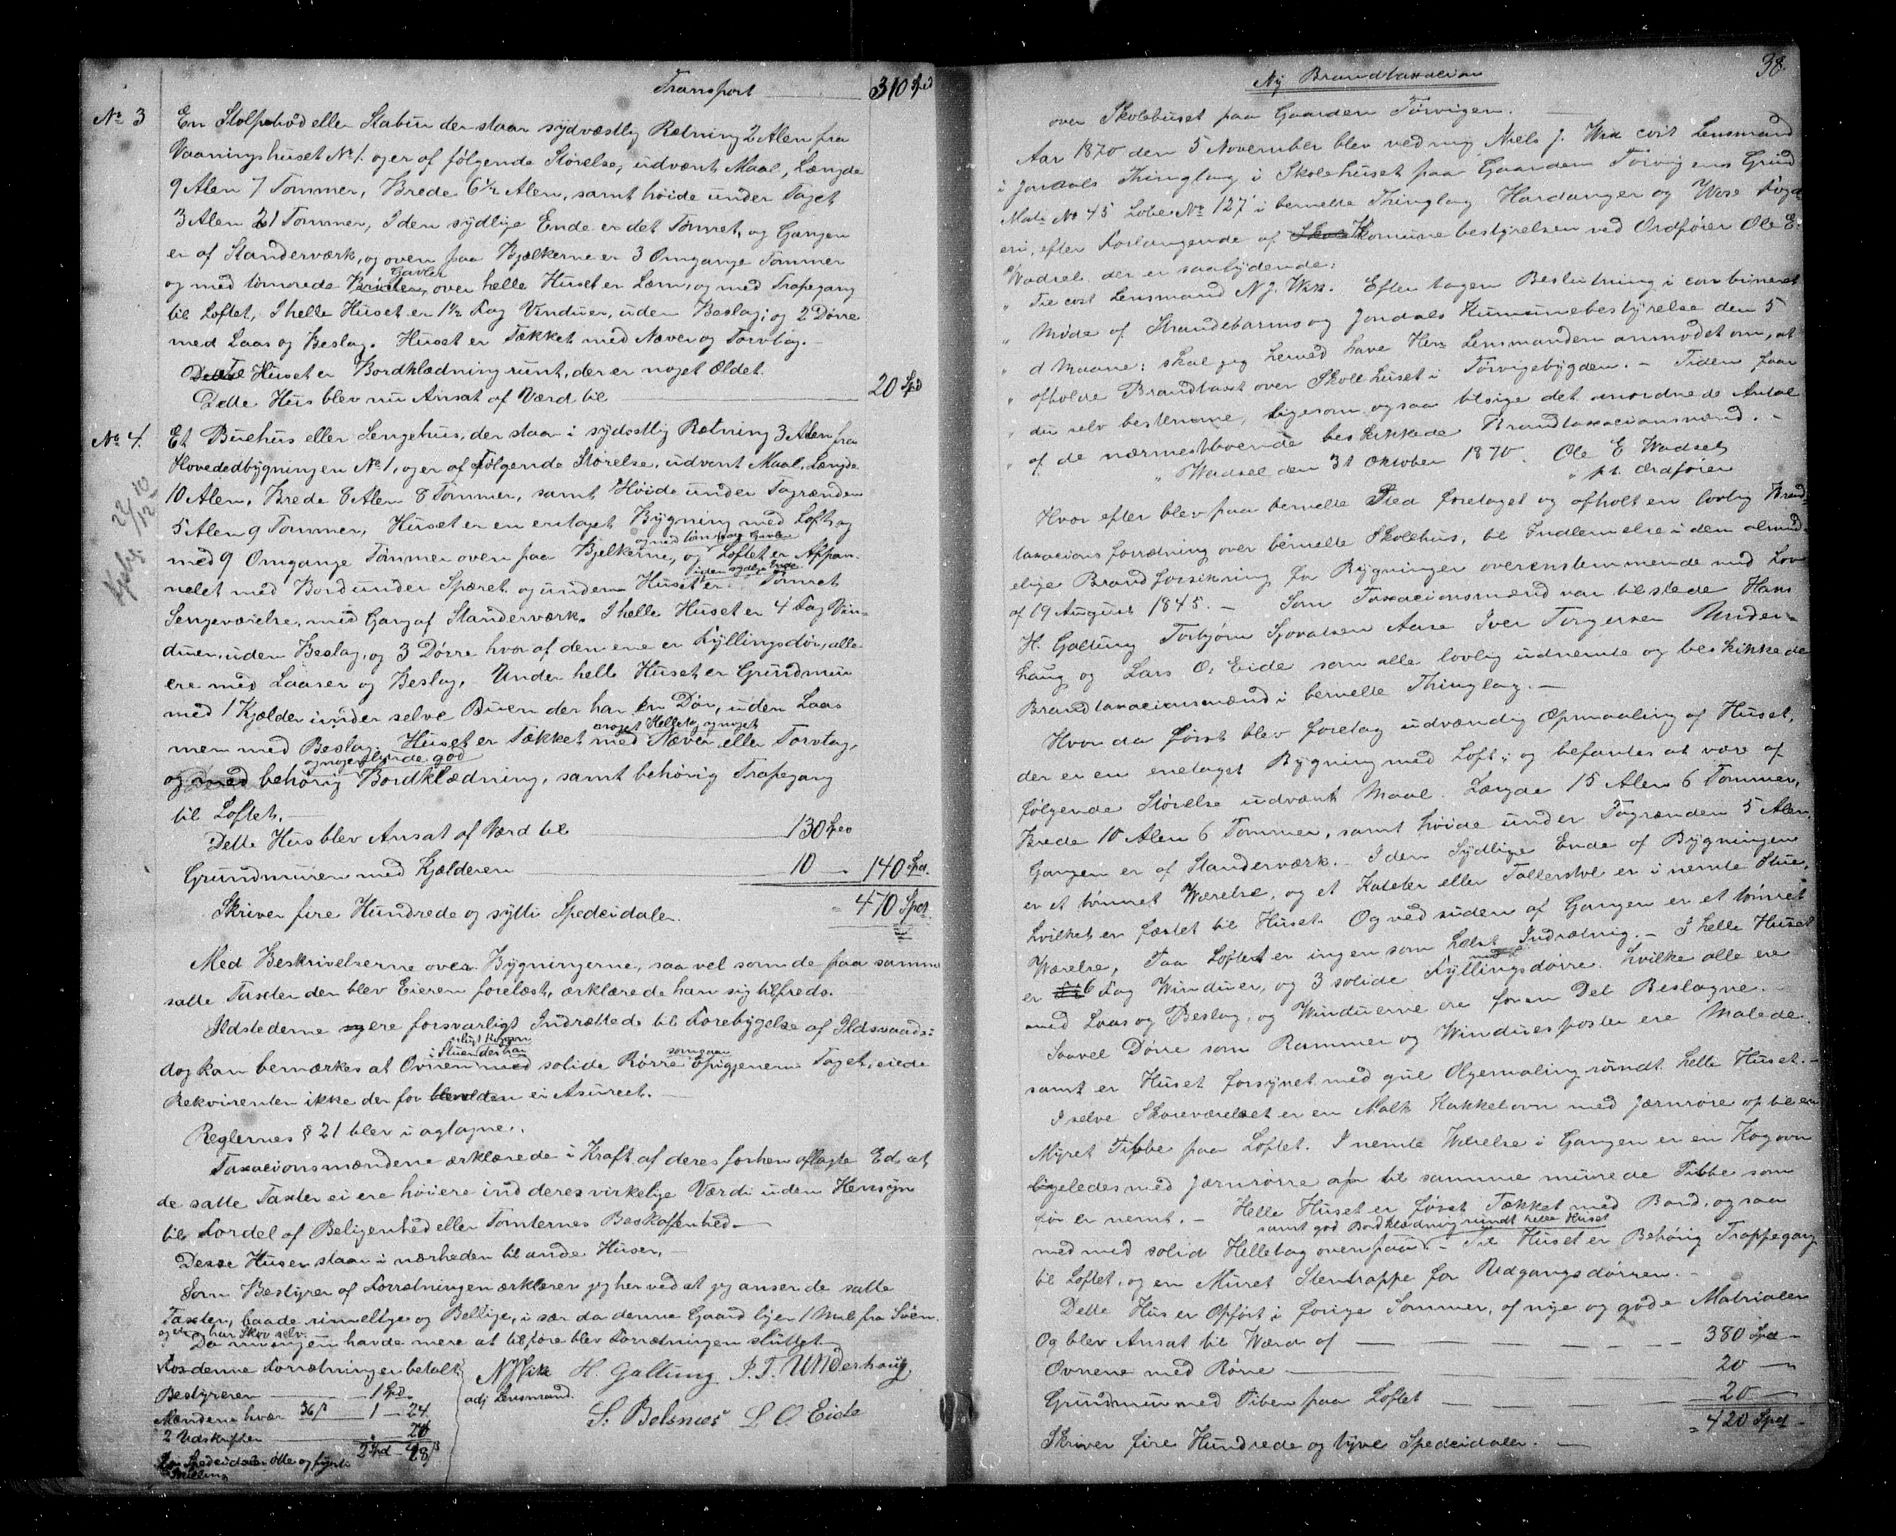 Transport 310 Spd
No 3 En Stolpebod eller Stabur der staar sydvæstlig Rætning 2 Alen fra
Vaaningshuset No 1. og er af følgende Størelse, udvænt Maal, Længde
9 Alen 7 Tommer, Brede 6½ Alen, samt høide under Taget
3 Alen 21 Tommer, I den sydlige Ende er det Tømret, og Gangen
er af Standerværk, og oven paa Bjelkerne er 3 Omgange Tømmer
og med tømrede Gavler, over helle Huset er Læm, og med Trapegang
til Loftet, I helle Huset er 1½ Fag Vinduer, uden Beslag; og 2 Dørre
med Laas og Beslag. Huset er Tækket med Næver og Torvtag.
Huset er Bordklædning runt, der er noget Ældet.
Dette Hus blev nu Ansat af Værd til 20 Spd
No 4. Et Buehus eller Sengehus, der staar i sydostlig Rætning 3 Alen fra
Hovededbygningen No 1, og er af Følgende Størelse, udvent Maal, Længde
10 Alen, Brede 8 Alen 8 Tommer, samt Høide under Tagrænden
5 Alen 9 Tommer, Huset er en etaget Bygning med Loft, og
med 9 Omgange Tømmer oven paa Bjelkerne, og Loftet er Appan-
nelet med Bord under Spæret og underne Huset er i den sydlige Ende Tømret
Sengeværelse, med Gang af Standerværk. I helle Huset er 4 Fag Vin-
duer, uden Beslag, og 3 Dørre hvor af den ene er Fyllingsdør, alle
ere med Laaser og Beslag. Under helle Huset er Grundmur
med 1 Kjælder under selve Buen der har en Dør, uden Laas
men med Beslag. Huset er Tækket med Næver, eller Torvtag,
noget Helletag og noget
og nogenlunde god
behørig Bordklædning, samt behørig Trapegang
til Loftet.
Dette Hus blev Ansat af Værd til 130 Spd
Grundmuren med Kjælderen 10 — 140 Spd.
Skriver fire Hundrede og sytti Spedcidaler. 470 Spd
Med Beskrivelserne over Bygningerne, saa vel som de paa samme
satte Taxter den blev Eieren forelæst, ærklærede han sig tilfreds.
Ildstederne ere forsvarligt Indrættede til Forebygelse af Ildsvaade;
dog kan bemærkes at Ovnen i Stuen der har solide Rørre som gaar op igjenem Taget, eiede
Rekvirenten ikke der for ei Asureet.
Reglernes § 21 blev i agtagne.
Taxacionsmændene ærklærede i Kraft af deres forhen aflagte Ed, at
de satte Taxter ei ere høiere ind deres virkelige Værdi uden Hensyn
til Fordel af Beligenhed eller Tomternes Beskaffenhed.
Desse Huser staar i nærheden til ande Huser.
Som Bestyrer af Forrætningen ærklærer jeg her ved at jeg anser de satte
Taxter, baade rimellige og Bellige, i sær da denne Gaard liger 1 Mul fra Søen
og har Skov selv.
Da ningen havde mere at tilføre blev Forrætningen sluttet
For denne Forrætningen betalt
Bestyreren 1 Spd.
Mændene hvær 36 β 1 — 24
2 Udskrifter „ 20
2 Spd — 28 β
Spedcidaler otte og Skilling
N J Wik H. Galtung P. T. Underhaug
adj Lensmand.
S. Belsnæs L O Eide
38.
Ny Brandtaxacion
over Skolehuset paa Gaarden Tørvigen.
Aar 1870 den 5 November blev ved mig Niels J. Wik cost Lensmand
i Jondals Thinglag i Skolehuset paa Gaarden Tørvigens Grund
Matr No 45 Løbe No 127 i bemelte Thinglag Hardanger og Wose Fogd
eri, efter Forlangende af Komunebestyrelsen ved Ordfører Ole E.
Wadsel der er saalydende:
„ Til cost Lensmand N J. Wik. Efter tagen Beslutning i combineret
„ Møde af Strandebarms og Jondals Kumunebestyrelse den 5
„ d Maane; skal jeg herved have Her Lensmanden anmodet om, at
„ afholde Brandtaxt over Skolehuset i Tørvigebygden. — Tiden faar
„ du selv bestemme, ligesom ogsaa tilsige det anordnede Antal
„ af de nærmestboende beskikkede Brandtaxacionsmænd. —
„ Wadsel den 31 Oktober 1870. Ole E Wadsel
„ pt. ordfører
Hvor efter blev paa bemelte Sted foretaget og afholt en lovlig Brand-
taxacions forrædning over bemelte Skolehus, til Indlemelse i den almind-
elige Brandforsikring for Bygninger overenstemmende med Lov
af 19 August 1845. — Som Taxacionsmænd var tilstede Hans
H. Galtung Torbjørn Sjovatsen Aase Iver Torgersen Under-
haug og Lars O. Eide som alle lovlig udnemte og beskikkede
Brandtaxacionsmænd i bemelte Thinglag. —
Hvor da først blev foretag udvændig Opmaaling af Huset,
der er en enetaget Bygning med Loft; og befantes at være af
følgende Størelse udvænt Maal. Længde 15 Alen 6 Tommer,
Brede 10 Alen 6 Tommer, samt høide under Tagrænden 5 Alen,
Gangen er af Standerværk. — I den Sydlige Ende af Bygningen
er et tømret Værelse, og et Kateter eller Talterstol er i nemte Stue,
hvilket er fæstet til Huset. Og ved siden af Gangen er et tømret
Værelse, Paa Loftet er ingen som helst Indrætnig. — I helle Huset
er 6 Fag Winduer, og 3 solide Fyllingsdørre. hvilke alle ere
med Laas og Beslag, og Winduerne ere foruden Det Beslagne.
Saavel Dørre som Rammer og Winduesposter ere Malede.
samt er Huset forsynet med gul Olgemaling rundt helle Huset. —
I selve Skoleværelset er en Kakkelovn med Jærnrøre op til en
Myret Pibbe paa Loftet. I nemte Wærelse i Gangen er en Kogovn
ligeledes med Jærnrørre til samme murede Pibbe som
før er nemt. — Helle Huset er først Tækket med Bord, og saa
samt god Bordklædnig rundt helle Huset
med solid Helletag oven paa. — Til Huset er Behørig Trappegang
til Loftet, og en Muret Stentrappe for Redgangsdørren. —
Dette Hus er Opført i forige Sommer, af nye og gode Matrialer
Og blev Ansat til Wærd af 380 Spd
Ovnene med Rørre 20 —
Grundmur med Piben paa Loftet 20 —
420 Spd
Skriver fire Hundrede og tyve Spedcidaler. —